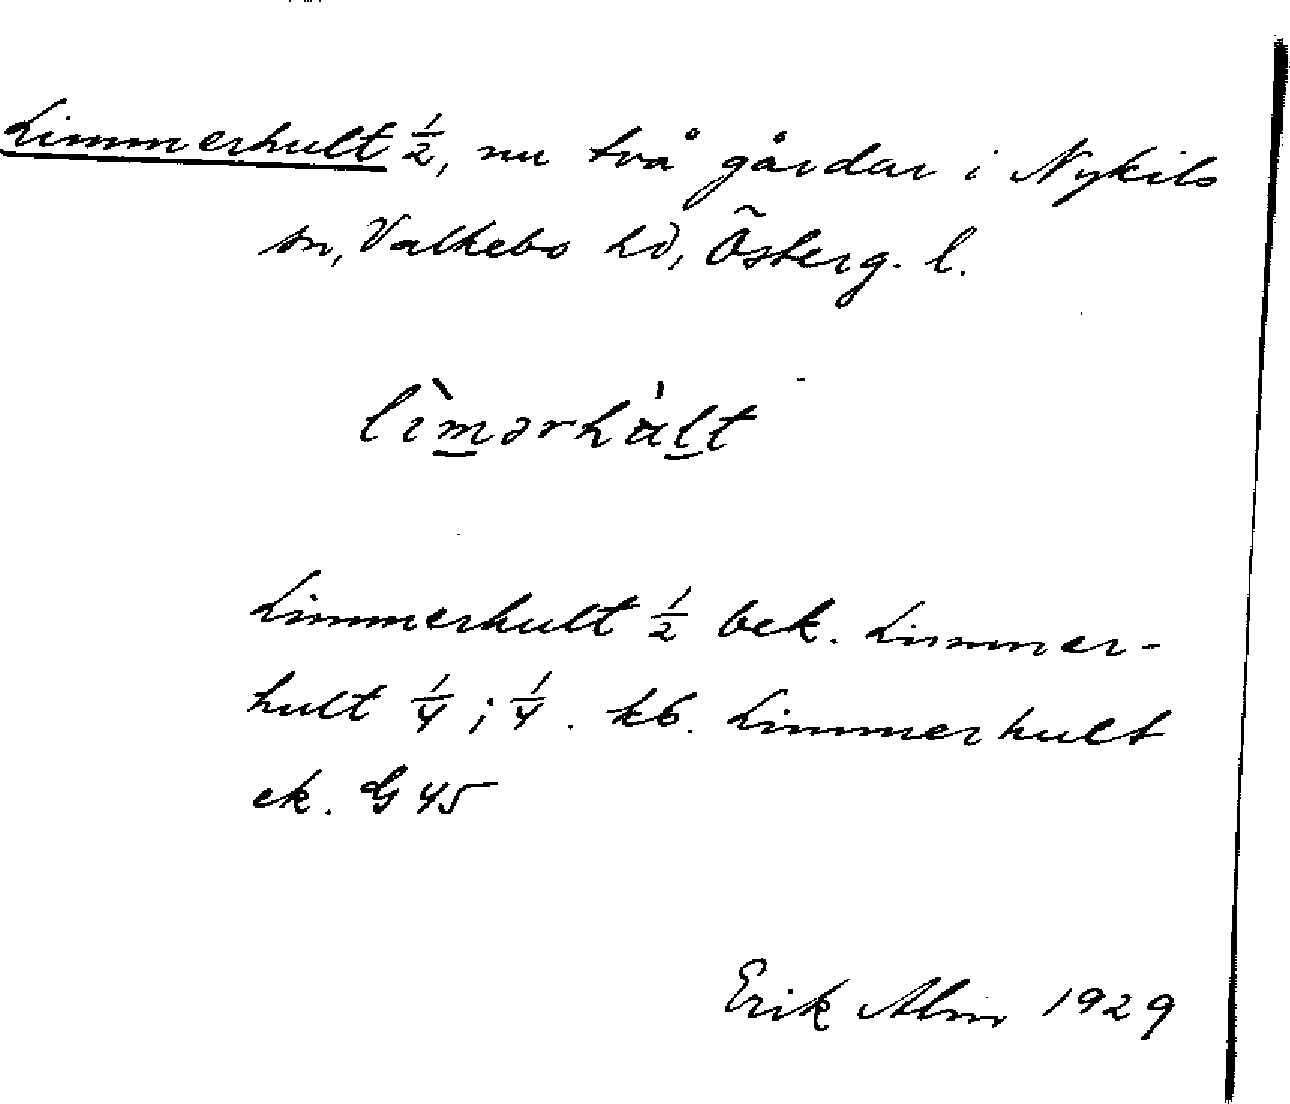 Limmerhult ½, nu två gårdar i Nykils
sn, Valkebo hd, Österg. l.
lìmərhàlt
Limmerhult ½ bek. Limmer-
hult ¼; ¼. kb. Limmerhult
ek. G 45
Erik Alm 1929